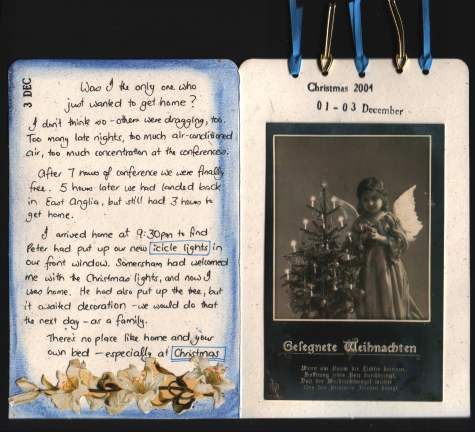 3 DEC
Was I the only one who
just wanted to get home?
I don't think so - others were dragging, too.
Too many late nights, too much air-conditioned
air, too much concentration at the conferences.
After 7 hours of conference we were finally
free. 5 hours later we had landed back
in East Anglia, but still had 3 hours to
get home.
I arrived home at 9:30pm to find
Peter had put up our new icicle lights in
our front window. Somersham had welcomed
me with the Christmas lights, and now I
was home. He had also put up the tree, but
it awaited decoration - we would do that
the next day - as a family.
There's no place like home and your
own bed - especially at Christmas
Christmas 2004
01-03 December
Gesegnete Weihnachten
Wenn am Baum die Lichter brennen